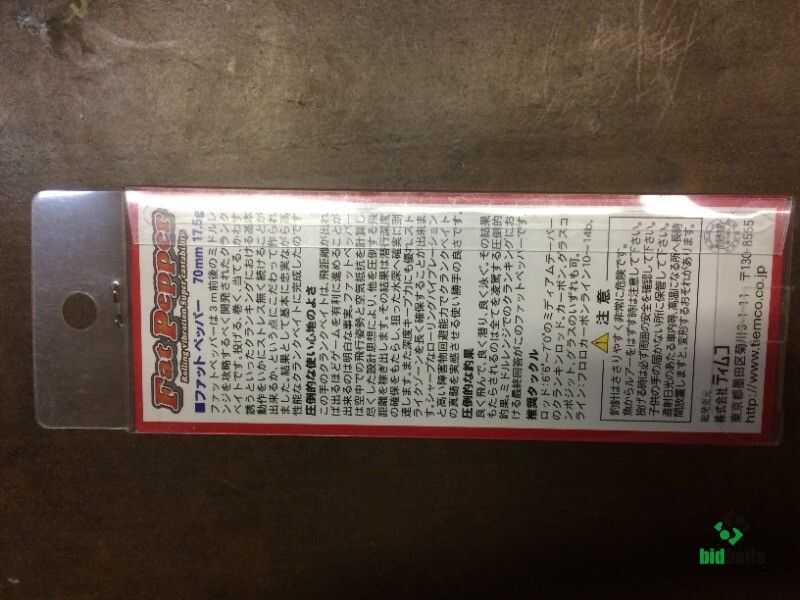 Fat Pepper
Rolling Vibration Super Castability
■ファット ペッパー 70mm 17.5g
ファットペッパーは、3m前後のミドルレ
ンジを攻略するべく開発されたクランク
ベイトです。投げる、巻く、当てる、かわす、
誘うといったクランキングにおける基本
動作をいかにストレス無く続けることが
出来るか、という点にこだわって作られ
ました。結果として基本に忠実ながら高
性能なクランクベイトに完成したのです。
圧倒的な使い心地のよさ
この手のクランクベイトは、飛距離が出れ
ば出るほどゲームを有利に進めることが
出来るのは明白な事実。ファットペッパー
は空中での飛行姿勢と空気抵抗を計算し
尽くした設計思想により、他を圧倒する飛
距離を稼ぎ出します。その結果は潜行深度
の確保をもたらし、狙った水深へ確実に到
達します。また、深度キープ力にも優れ、スト
ライクゾーンを長く確保することが出来ま
す。シャープなローリングアクション
と高い障害物回避能力でクランクベイト
の真髄を実感させる使い勝手の良さです。
圧倒的な釣果
良く飛んで、良く潜り、良く泳ぐ。その結果
もたらされるのは全てを凌駕する圧倒的
釣果。ミドルレンジでのクランキングにお
ける最終回答がこのファットペッパーです。
推奨タックル
ロッド:6'6"~7'0"のミディアムテーパー
のクランキンロッド。カーボン、グラスコ
ンポジット、グラスのいずれも可。
ライン:フロロカーボンライン10~14lb.
⚠ 注意
釣針はささりやすく非常に危険です。
魚からルアーをはずす時は注意して下さい。
投げる時は必ず周囲の安全を確認して下さい。
子供の手の届かない所に保管して下さい。
直射日光のあたる車内等、高温になる所へ長時
間放置しますと、変形するおそれがあります。
総発売元
株式会社 ティムコ
東京都墨田区菊川3-1-11 〒130-8555
http://www.tiemco.co.jp
bidbaits